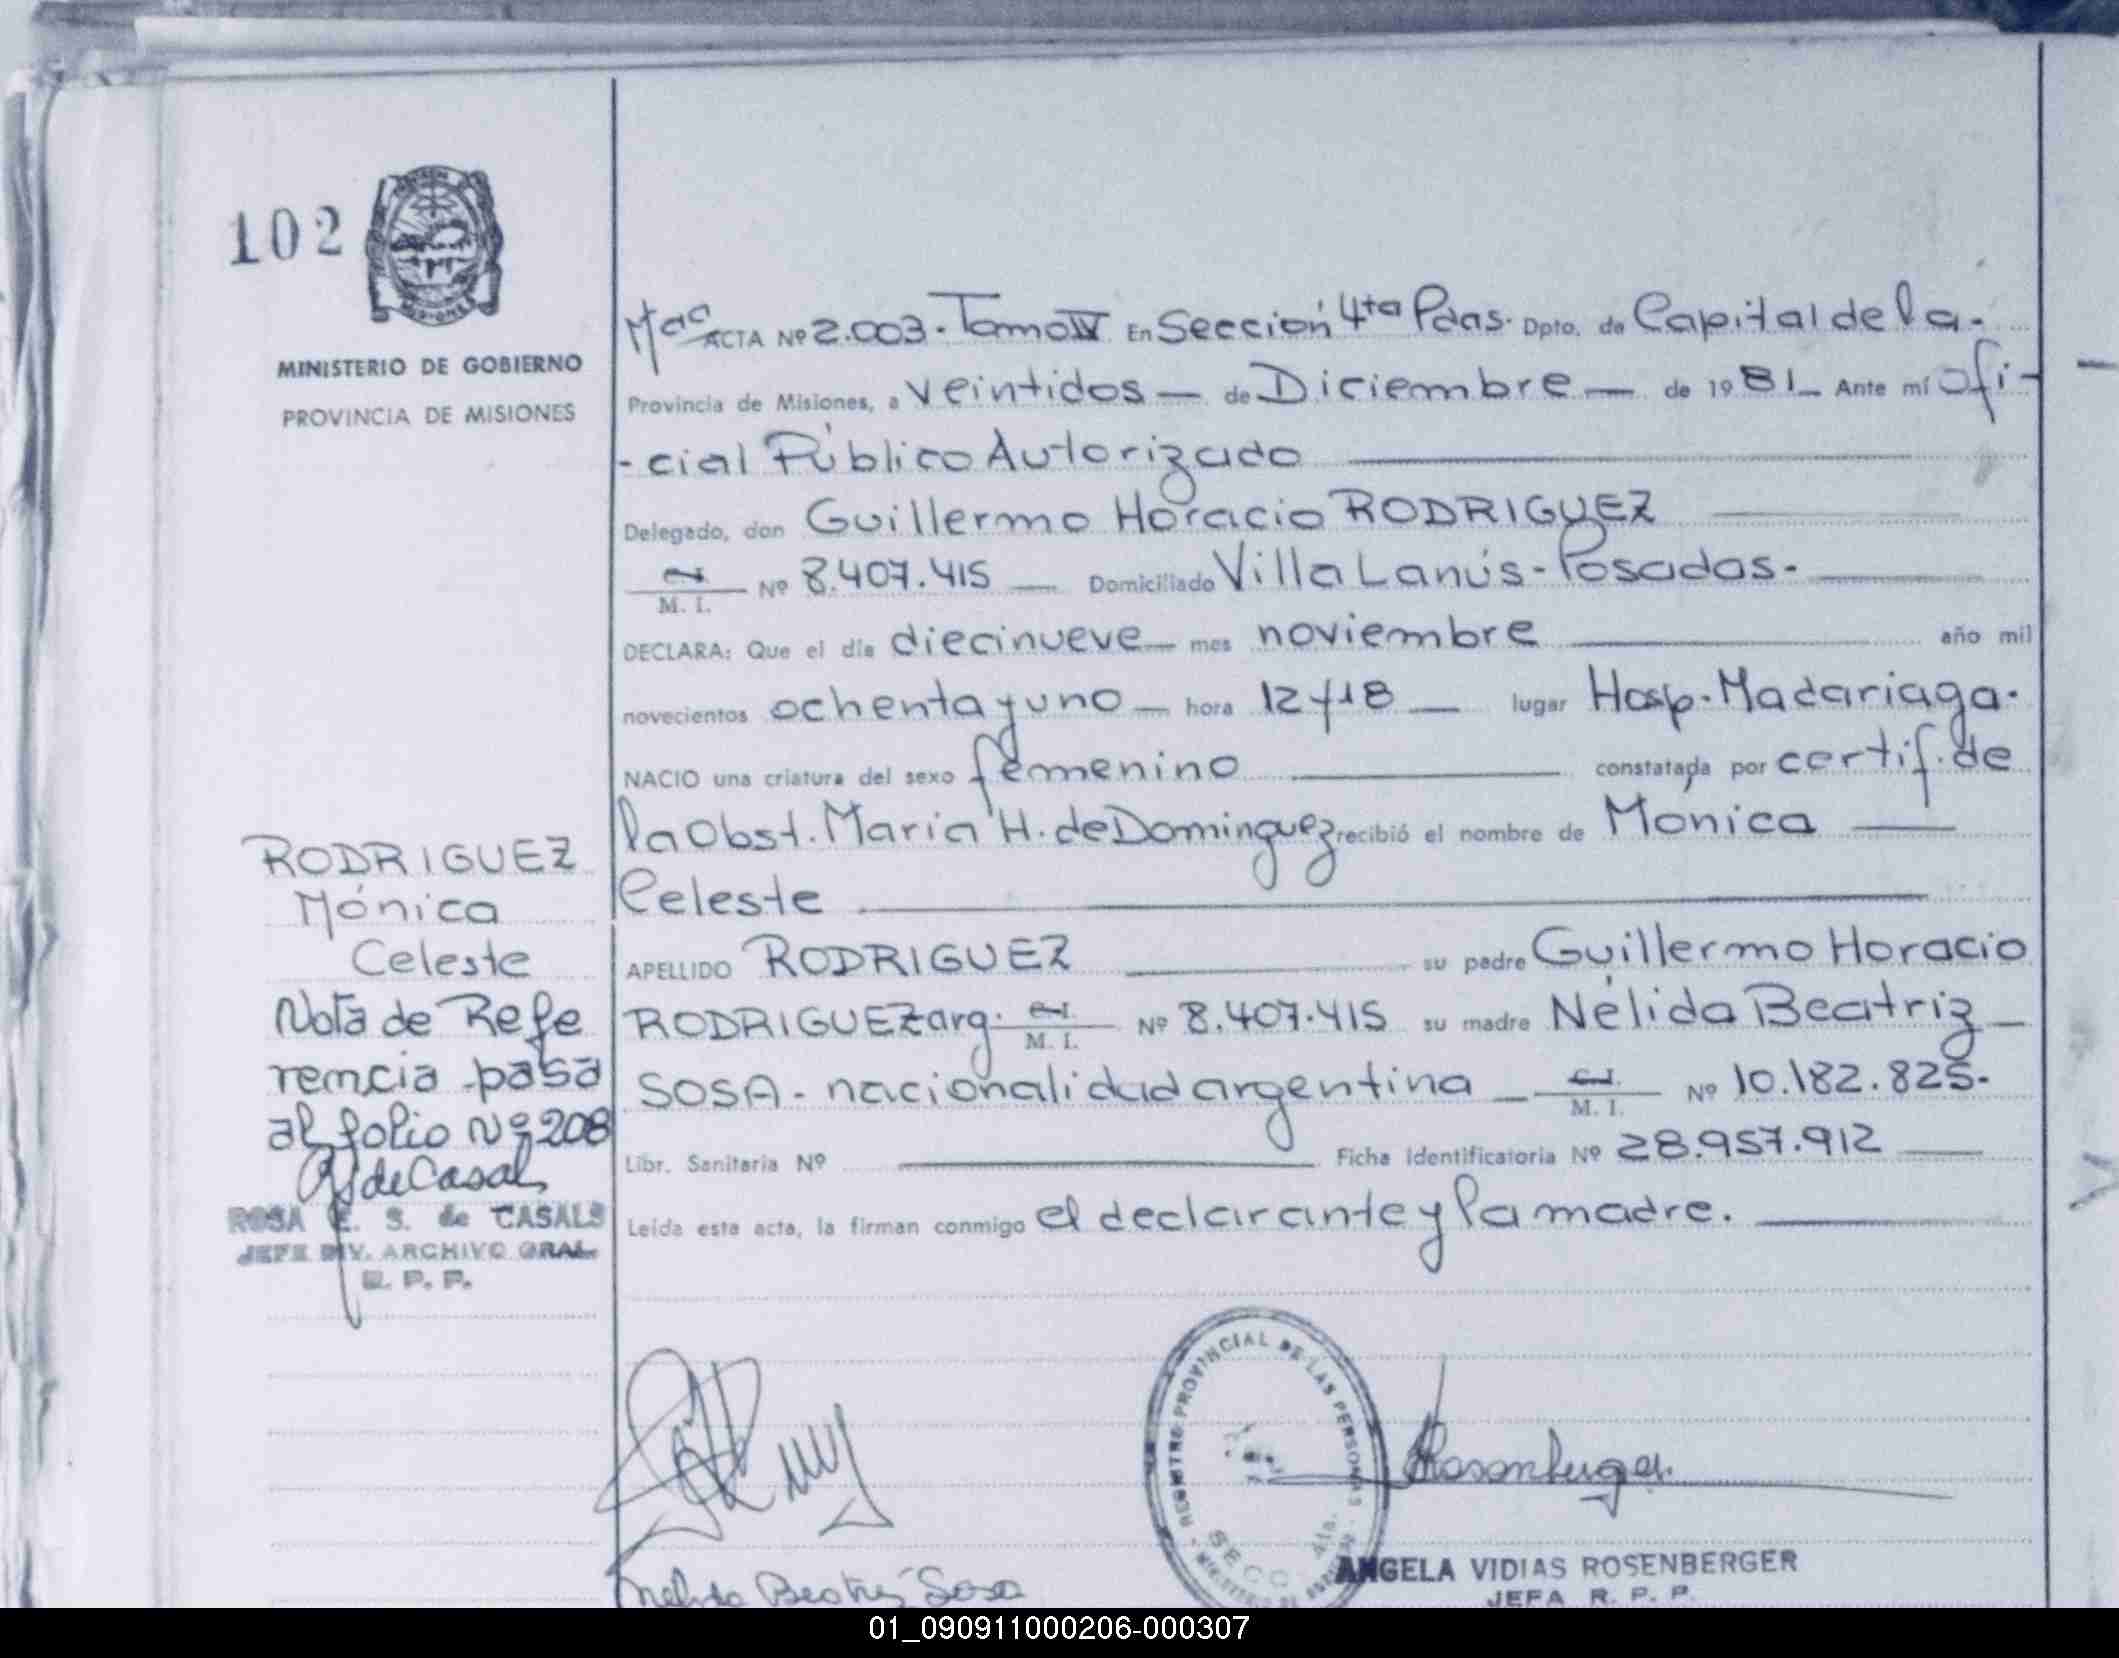 102
MINISTERIO DE GOBIERNO
PROVINCIA DE MISIONES
ACTA Nº 2.003. Tomo IV En Sección 4ta Pdas. Dpto. de Capital de la.
Provincia de Misiones, a veintidos — de Diciembre — de 1981 — Ante mí ofi-
-cial Público Autorizado
Delegado, don Guillermo Horacio RODRIGUEZ
M. I. Nº 8.407.415 — Domiciliado Villa Lanús - Posadas.
DECLARA: Que el día diecinueve — mes noviembre — año mil
novecientos ochenta y uno — hora 12 y 18 — lugar Hosp. Madariaga.
NACIO una criatura del sexo femenino — constatada por certif. de
la Obst. María H. de Dominguez recibió el nombre de Mónica —
Celeste
APELLIDO RODRIGUEZ — su padre Guillermo Horacio
RODRIGUEZ arg. C.I. M. I. Nº 8.407.415 su madre Nélida Beatriz —
SOSA - nacionalidad argentina — C.I. M. I. Nº 10.182.825.
Libr. Sanitaria Nº — Ficha Identificatoria Nº 28.957.912 —
Leída esta acta, la firman conmigo el declarante y la madre.
RODRIGUEZ
Mónica
Celeste
Nota de Refe
rencia pasa
al folio Nº 208
RS de Casals
ROSA E. S. de CASALS
JEFE DIV. ARCHIVO GRAL.
R. P. P.
REGISTRO PROVINCIAL DE LAS PERSONAS
SECC. 4ta.
Rosenberger
Nelida Beatriz Sosa
ANGELA VIDIAS ROSENBERGER
JEFA R. P. P.
01_090911000206-000307